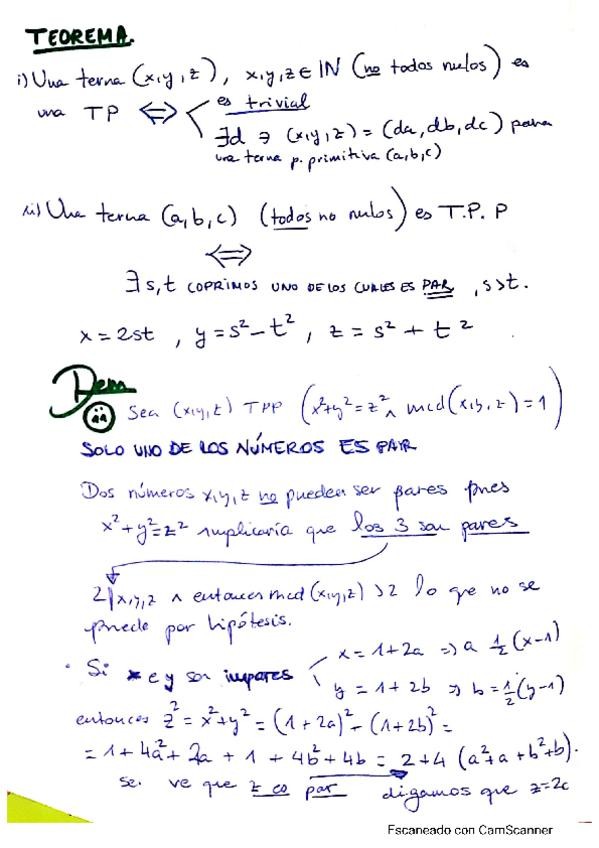 TEOREMA.
i) Una terna (x,y,z), x,y,z ∈ IN (no todos nulos) es
una TP ⟺ es trivial
∃d ∋ (x,y,z) = (da, db, dc) para
una terna p. primitiva (a,b,c)
ii) Una terna (a,b,c) (todos no nulos) es T.P.P
⟺
∃ s,t COPRIMOS UNO DE LOS CUALES ES PAR, s>t.
x = 2st, y = s² - t², z = s² + t².
Dem
Sea (x,y,z) TPP (x²+y²=z² ∧ mcd(x,y,z)=1)
SOLO UNO DE LOS NÚMEROS ES PAR
Dos números x,y,z no pueden ser pares pues
x²+y²=z² implicaría que los 3 son pares
2|x,y,z ∧ entonces mcd(x,y,z) >2 lo que no se
puede por hipótesis.
· Si x e y son impares x = 1+2a => a ½(x-1)
y = 1+2b => b=½(y-1)
entonces z² = x²+y² = (1+2a)² - (1+2b)² =
= 1+4a²+2a + 1 + 4b²+4b = 2+4 (a²+a+b²+b).
se ve que z es par digamos que z=2c
Escaneado con CamScanner